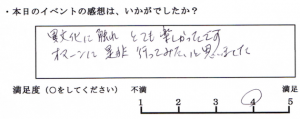 ・本日のイベントの感想は、いかがでしたか？
異文化に触れ とても 楽しかったです
オマーンに是非 行ってみたいと思いました
満足度（○をしてください） 不満 満足
1 2 3 4 5